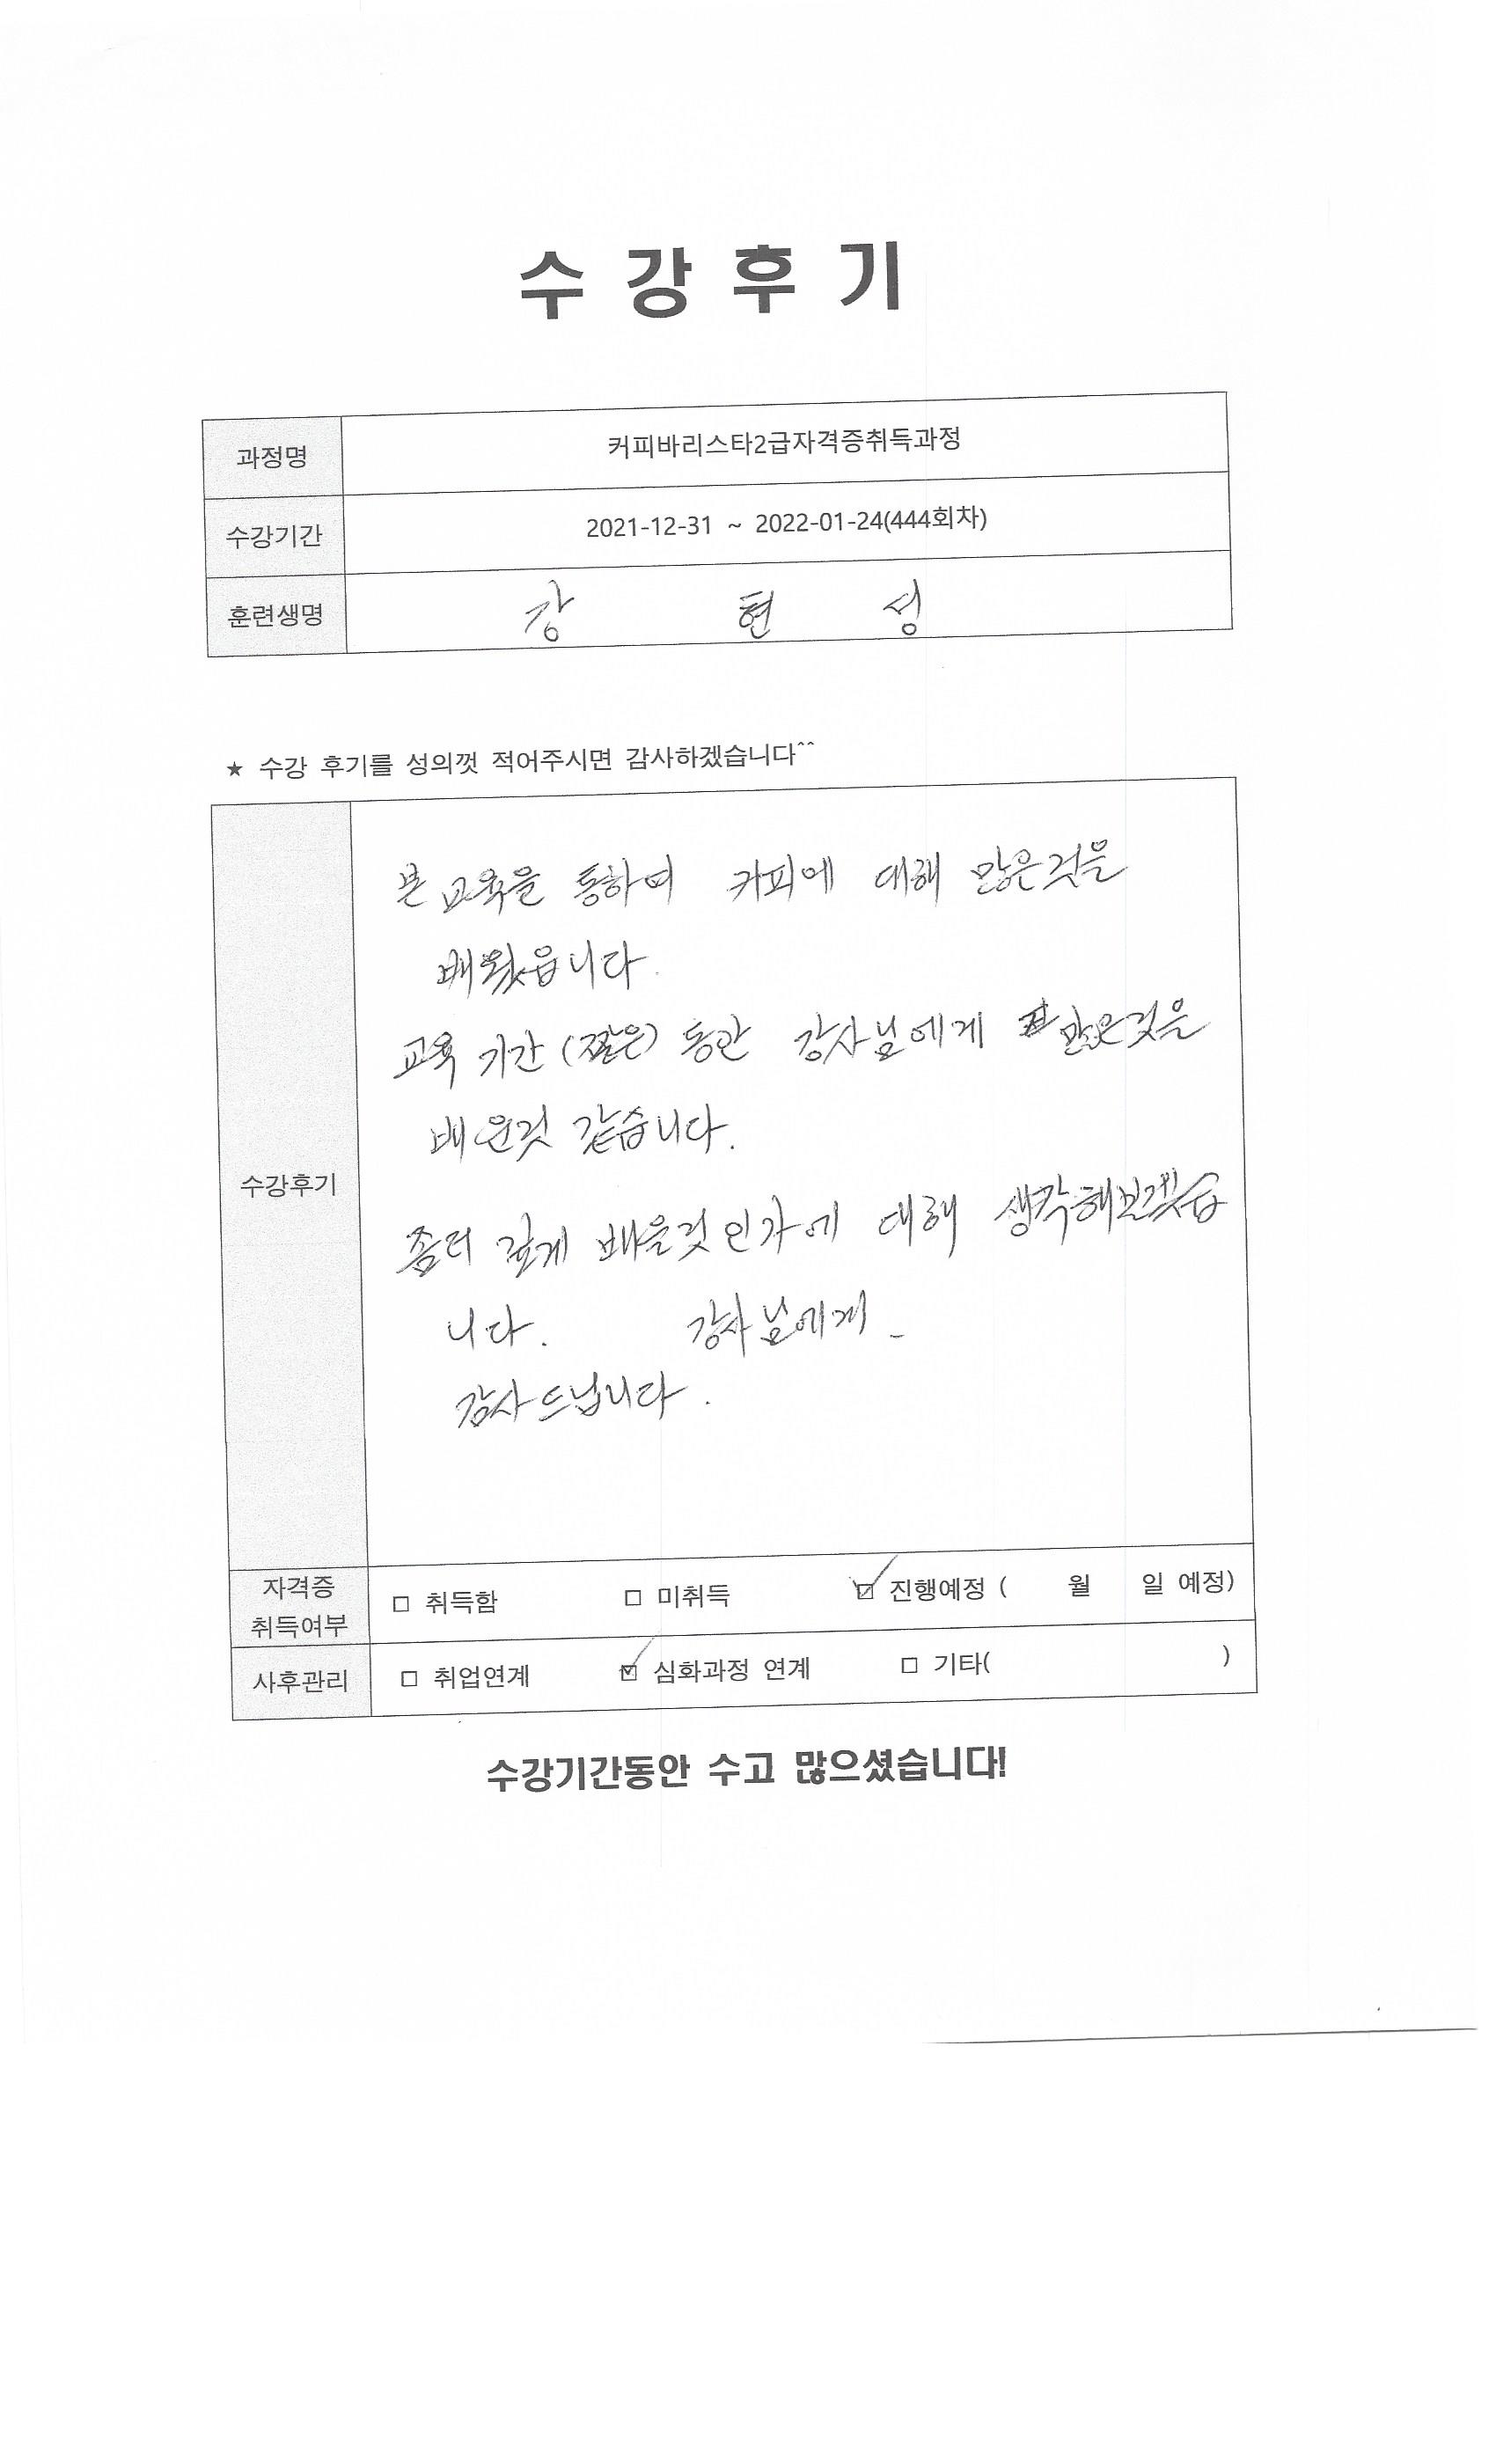 수 강 후 기
과정명 커피바리스타2급자격증취득과정
수강기간 2021-12-31 ~ 2022-01-24(444회차)
훈련생명 강 현 성
★ 수강 후기를 성의껏 적어주시면 감사하겠습니다^^
수강후기
본 교육을 통하여 커피에 대해 많은것을
배웠읍니다.
교육 기간 (짧은) 동안 강사님에게 많은것을
배운것 같습니다.
좀더 깊게 배울것인가에 대해 생각해보겠습
니다. 강사님에게
감사드립니다.
자격증
취득여부 □ 취득함 □ 미취득 ☑ 진행예정 ( 월 일 예정)
사후관리 □ 취업연계 ☑ 심화과정 연계 □ 기타( )
수강기간동안 수고 많으셨습니다!